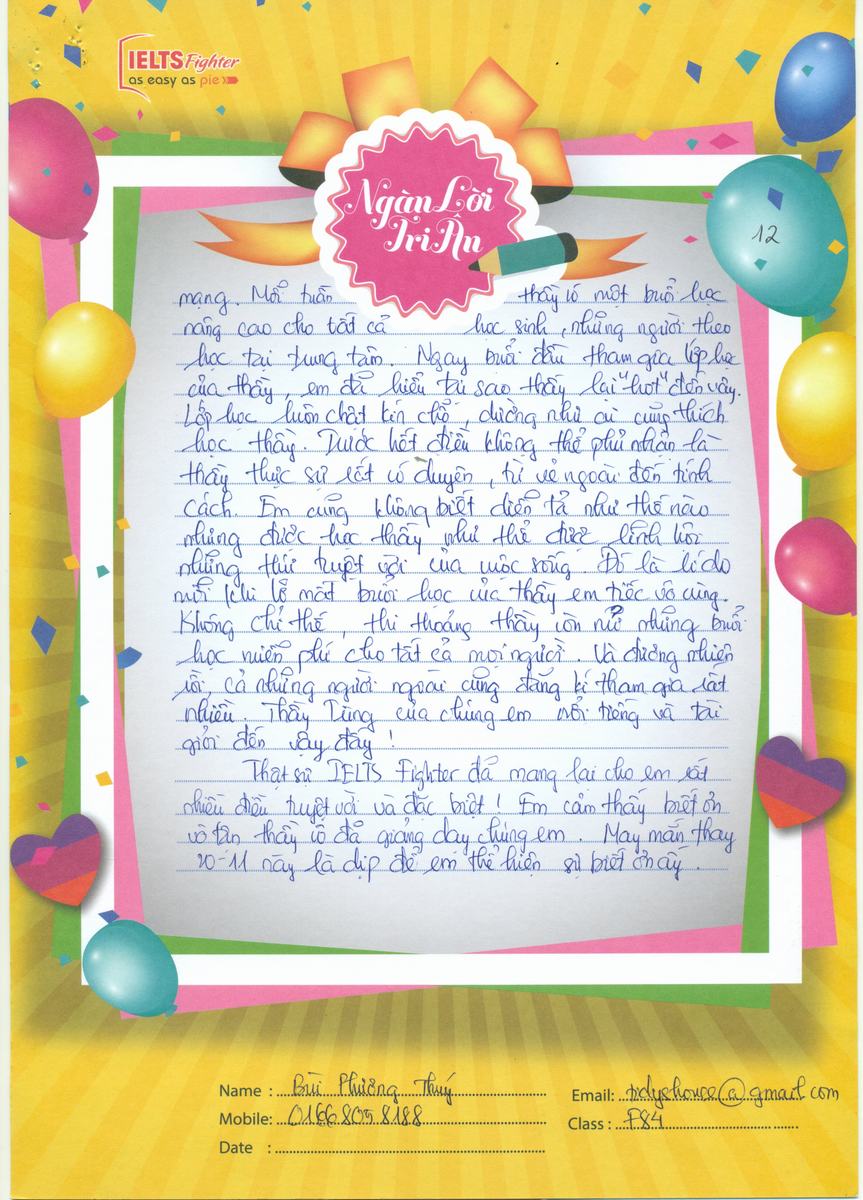 IELTS Fighter
as easy as pie
Ngàn Lời
Tri Ân
12
mạng. Mỗi tuần thầy có một buổi học
nâng cao cho tất cả học sinh, những người theo
học tại trung tâm. Ngay buổi đầu tham gia lớp học
của thầy, em đã hiểu tại sao thầy lại "hot" đến vậy.
Lớp học luôn chật kín chỗ, dường như ai cũng thích
học thầy. Trước hết điều không thể phủ nhận là
thầy thực sự rất có duyên, từ vẻ ngoài đến tính
cách. Em cũng không biết diễn tả như thế nào
nhưng được học thầy như thể được lĩnh hội
những thứ tuyệt vời của cuộc sống. Đó là lí do
mỗi khi lỡ mất buổi học của thầy em tiếc vô cùng.
Không chỉ thế, thi thoảng thầy còn mở những buổi
học miễn phí cho tất cả mọi người. Và đương nhiên
rồi, cả những người ngoài cũng đăng kí tham gia rất
nhiều. Thầy Tùng của chúng em nổi tiếng và tài
giỏi đến vậy đấy!
Thật sự IELTS Fighter đã mang lại cho em rất
nhiều điều tuyệt vời và đặc biệt! Em cảm thấy biết ơn
vô tận thầy cô đã giảng dạy chúng em. May mắn thay
20-11 này là dịp để em thể hiện sự biết ơn ấy.
Name : Bùi Phương Thuý
Email: @gmail.com
Mobile: 01668058188
Class : F84
Date :